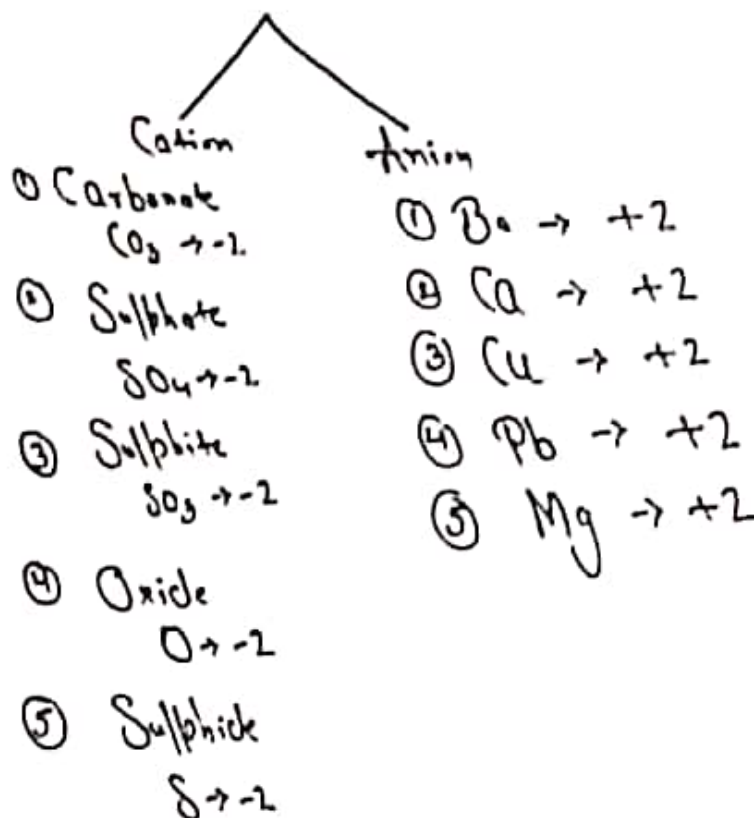 Cation
① Carbonate
CO₃ → -2
② Sulphate
SO₄ → -2
③ Sulphite
SO₃ → -2
④ Oxide
O → -2
⑤ Sulphide
S → -2
Anion
① Ba → +2
② Ca → +2
③ Cu → +2
④ Pb → +2
⑤ Mg → +2